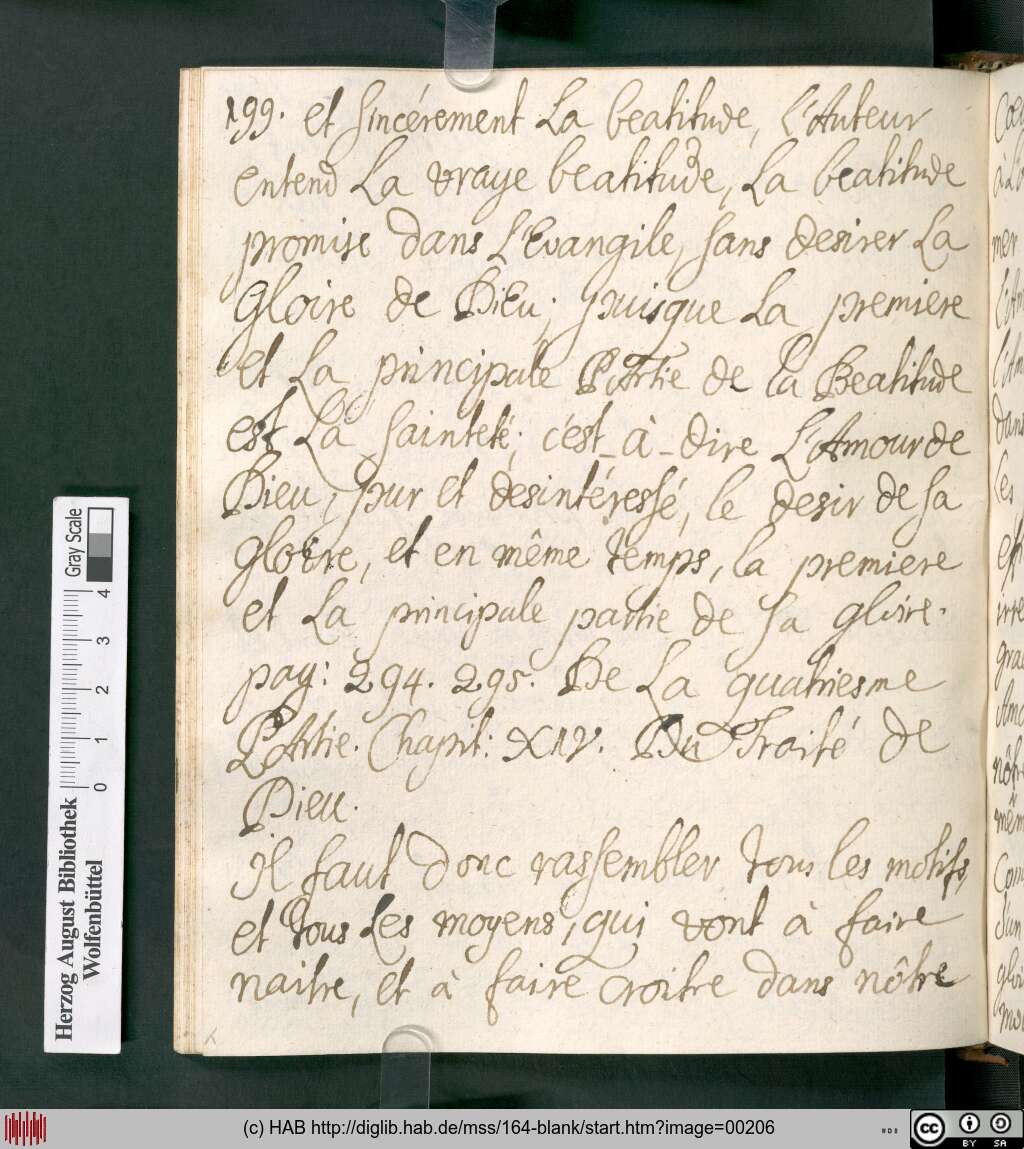 199. et sincérement La beatitude, L'Auteur
entend La vraye beatitude, La beatitude
promise dans L'Evangile, sans desirer La
Gloire de Dieu; puisque La premiere
et La principale Partie de la Beatitude
est La sainteté; c'est-à-dire L'Amour de
Dieu, pur et desintéressé, le desir de sa
gloire, et en même temps, la premiere
et La principale partie de sa gloire.
pag: 294. 295. De La quatriesme
Partie. Chapit: XIV. Du Traité de
Dieu.
Il faut donc rassembler tous les motifs,
et tous Les moyens, qui vont à faire
naitre, et à faire croitre dans nôtre
Gray Scale
0 1 2 3 4
Herzog August Bibliothek
Wolfenbüttel
(c) HAB http://diglib.hab.de/mss/164-blank/start.htm?image=00206
cc BY SA